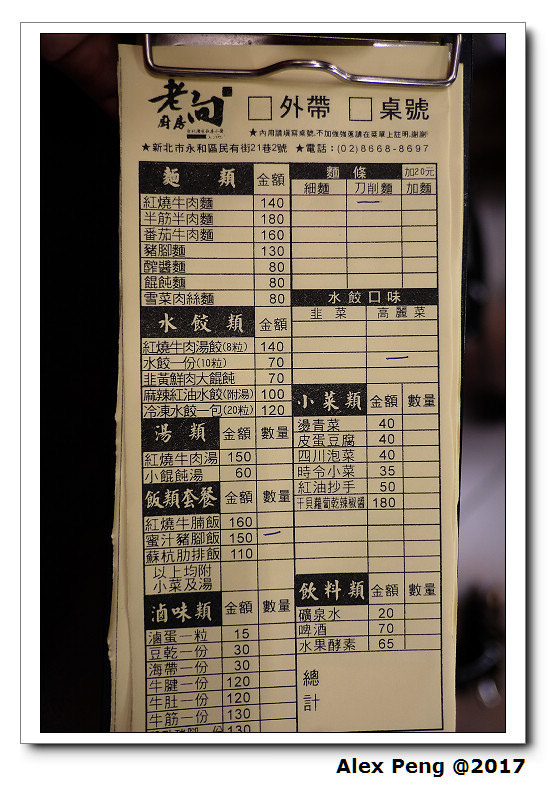 老向
廚房
外帶 桌號
★內用請填寫桌號,不加強強還請在菜單上註明,謝謝!
★新北市永和區民有街21巷2號 ★電話:(02)8668-8697
麵 類 金額 麵 條 加20元
細麵 刀削麵 加麵
紅燒牛肉麵 140 一
半筋半肉麵 180
番茄牛肉麵 160
豬腳麵 130
醡醬麵 80
餛飩麵 80
雪菜肉絲麵 80
水餃口味
水餃類 金額 韭菜 高麗菜
紅燒牛肉湯餃(8粒) 140
水餃一份(10粒) 70 一
韭黃鮮肉大餛飩 70
麻辣紅油水餃(附湯) 100
冷凍水餃一包(20粒) 120
小菜類 金額 數量
湯類 金額 數量
燙青菜 40
皮蛋豆腐 40
紅燒牛肉湯 150
四川泡菜 40
小餛飩湯 60
時令小菜 35
飯類套餐 金額 數量
紅油抄手 50
干貝蘿蔔乾辣椒醬 180
紅燒牛腩飯 160
蜜汁豬腳飯 150 一
蘇杭肋排飯 110
以上均附
小菜及湯
飲料類 金額 數量
滷味類 金額 數量
礦泉水 20
啤酒 70
水果酵素 65
滷蛋一粒 15
豆乾一份 30
海帶一份 30
牛腱一份 120
牛肚一份 120
牛筋一份 130
130
總
計
Alex Peng @2017